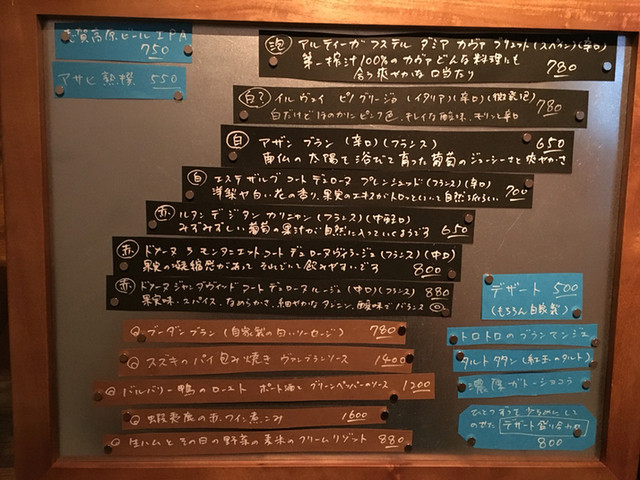 志賀高原ビール IPA
750
アサヒ熟撰 550
泡 アルティーガ フステル ダミア カヴァ ブリュット(スペイン)(辛口)
第一搾汁100%のカヴァ どんな料理にも
合う爽やかな口当たり 780
白? イル ヴェイ ピノ グリージョ (イタリア)(辛口)(微発泡)
白だけどほのかにピンク色、キレイな酸味、キリッと辛口 780
白 アザン ブラン (辛口)(フランス) 650
南仏の太陽を浴びて育った葡萄のジューシーさと爽やかさ
白 エステザルグ コート デュ ローヌ プレン シュッド (フランス)(辛口)
洋梨や白い花の香り、果実のエキスがトロッとしいて自然派らしい 700
赤 ルタン デ ジタン カリニャン (フランス)(中軽口)
みずみずしい葡萄の果汁が自然に入っていきそうです 650
赤 ドメーヌ ラ モンタニエット コート デュ ローヌ ヴィラージュ (フランス)(中口)
果実の凝縮感があって それでいて飲みやすいです 800
赤 ドメーヌ ジャン ダヴィッド コート デュ ローヌ ルージュ (中口)(フランス) 880
果実味、スパイス、なめらかさ、細やかなタンニン、酸味でバランス◎
ブーダン ブラン (自家製の白いソーセージ) 780
スズキのパイ包み焼き ヴァンブランソース 1400
バルバリー鴨のロースト ポート酒とグリーンペッパーのソース 1200
蝦夷鹿の赤ワイン煮こみ 1600
生ハムとその日の野菜の麦米のクリームリゾット 880
デザート 500
(もちろん自家製)
トロトロのブランマンジェ
タルトタタン (紅玉のタルト)
濃厚ガトーショコラ
ひとつずつを少なめにして
のせた デザート盛り合わせ
800